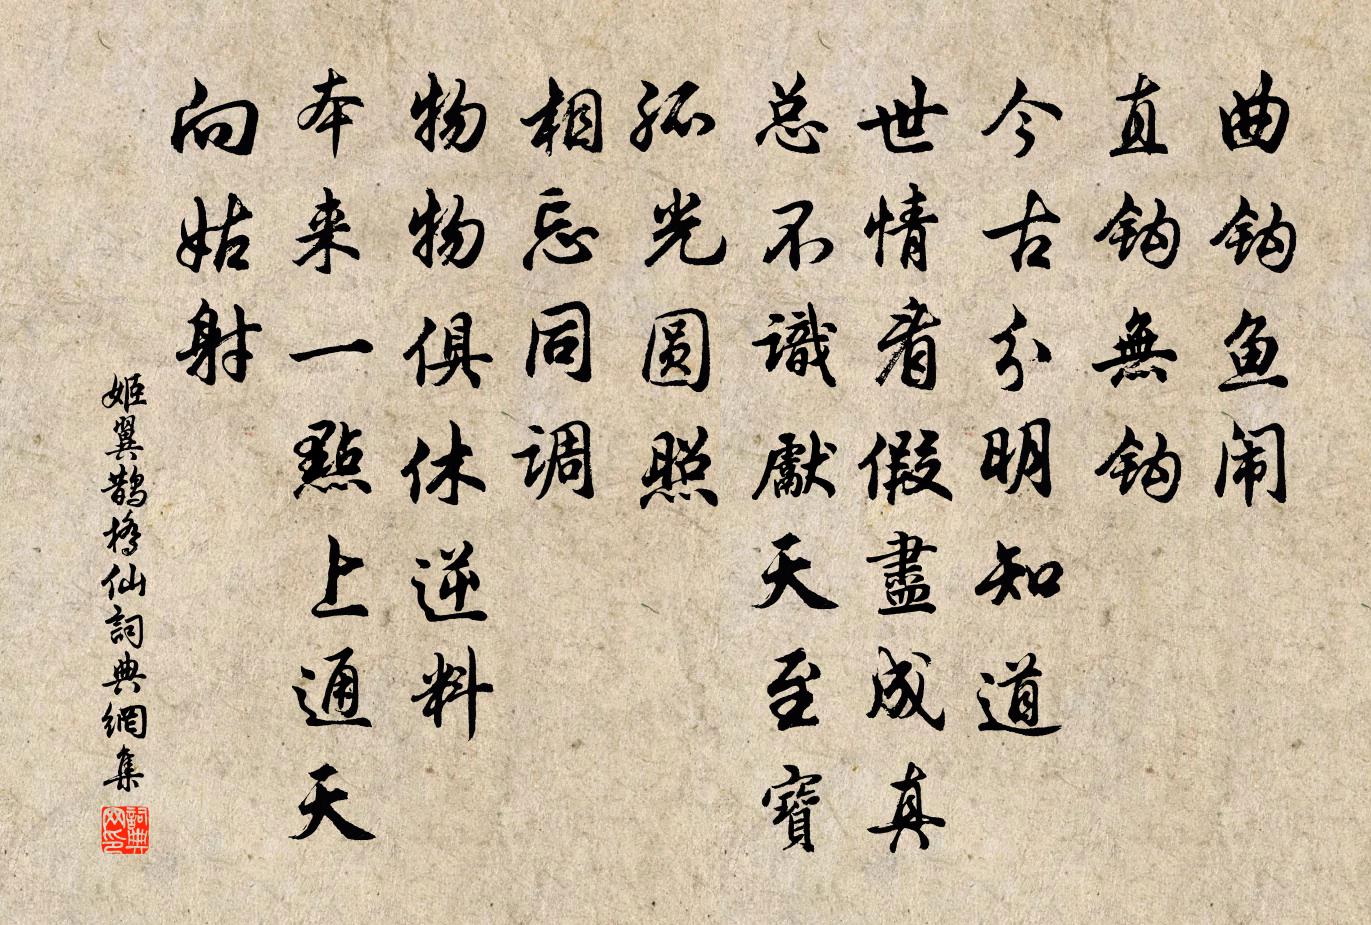 曲钩鱼闹
直钩無钩
今古分明知道
世情看假盡成真
总不識獻天至寶
孤光圆照
相忘同调
物物俱休逆料
本来一點上通天
向姑射
姬翼鹊橋仙詞典網集
詞典網印